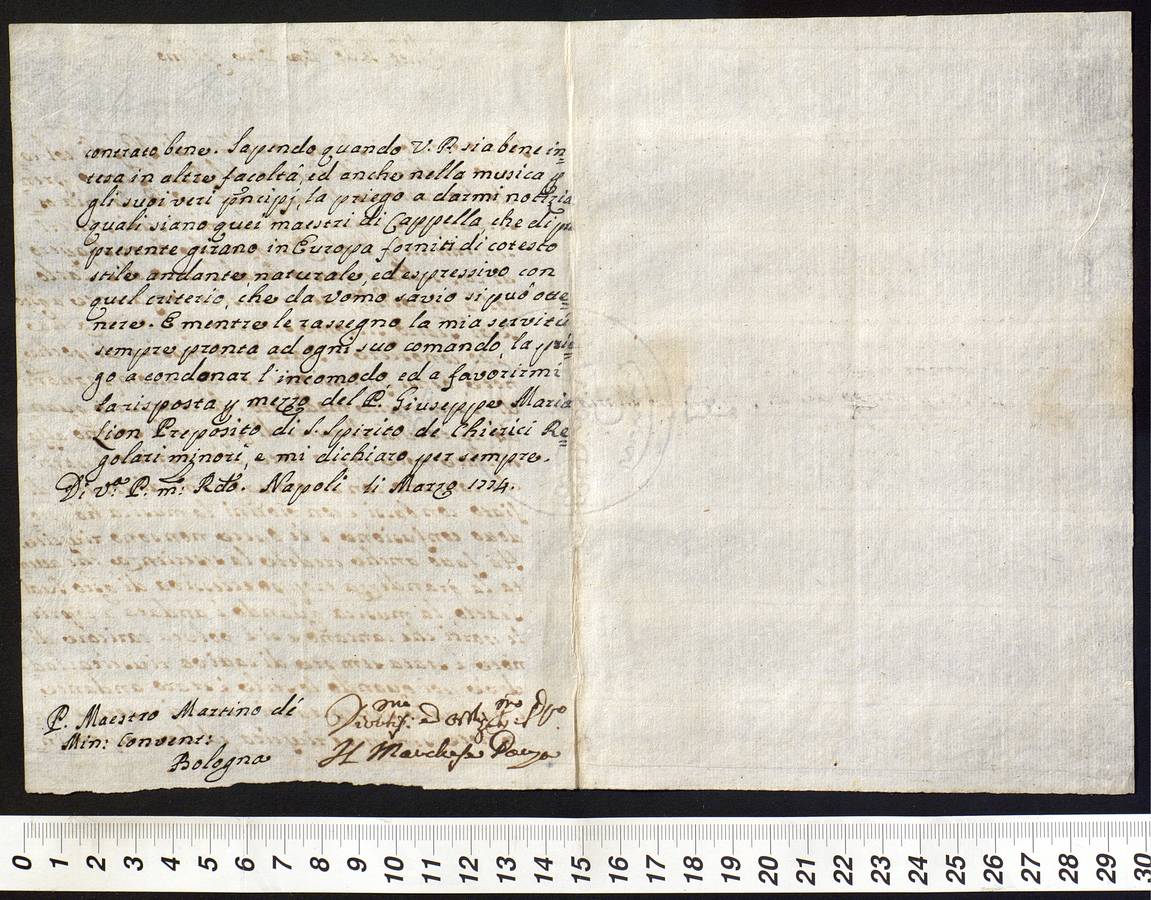 contrato bene. Sapendo quando V. P. sia bene in=
tesa in altre facoltá, ed anche nella musica p
gli suoi veri pñcipj, la priego a darmi notizia
quali siano quei maestri di Cappella, che di
presente girano in Europa forniti di cotesto
stile andante, naturale, ed espressivo con
quel criterio, che da Vomo savio si può otte=
nere. E mentre le rassegno la mia servitú
sempre pronta ad ogni suo comando, la prie=
go a condonar l'incomodo, ed a favorirmi
la risposta p mezzo del P. Giuseppe Maria
Lion Preposito di S. Spirito de Chierici Re=
golari minori, e mi dichiaro per sempre.
Di V.ª P. m.º Rdª. Napoli li Marzo 1774.
P. Maestro Martino dé
Min: Convent:
Bologna
Divotis: ed
Il Marchese
0 1 2 3 4 5 6 7 8 9 10 11 12 13 14 15 16 17 18 19 20 21 22 23 24 25 26 27 28 29 30